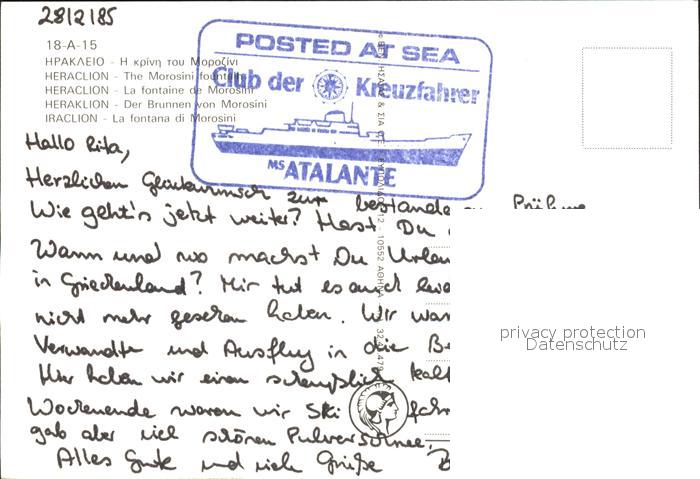 28/2/85
18-A-15
ΗΡΑΚΛΕΙΟ - Η κρίνη του Μοροζίνι
HERACLION - The Morosini fountain
HERACLION - La fontaine de Morosini
HERAKLION - Der Brunnen von Morosini
IRACLION - La fontana di Morosini
POSTED AT SEA
Club der Kreuzfahrer
MS ATALANTE
Hallo Rita,
Herzlichen Glückwunsch zur bestande
Wie geht's jetzt weiter? Hast Du
Wann und wo machst Du Urlau
in Griechenland? Mir tut es auch
nicht mehr gesehen haben. Wir war
Verwandte und Ausflug in die Be
Hier haben wir einen scheußlich kalt
Wochenende waren wir Ski fahr
gab aber viel schönen Pulverschnee.
Alles Gute und viele Grüße
10552 ΑΘΗΝΑ
privacy protection
Datenschutz